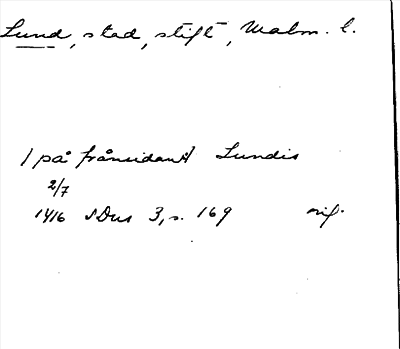 Lund, stad, stift, Malm. l.
/ på frånsidan / Lundis
2/7
1416 SDns 3, s. 169 orig.